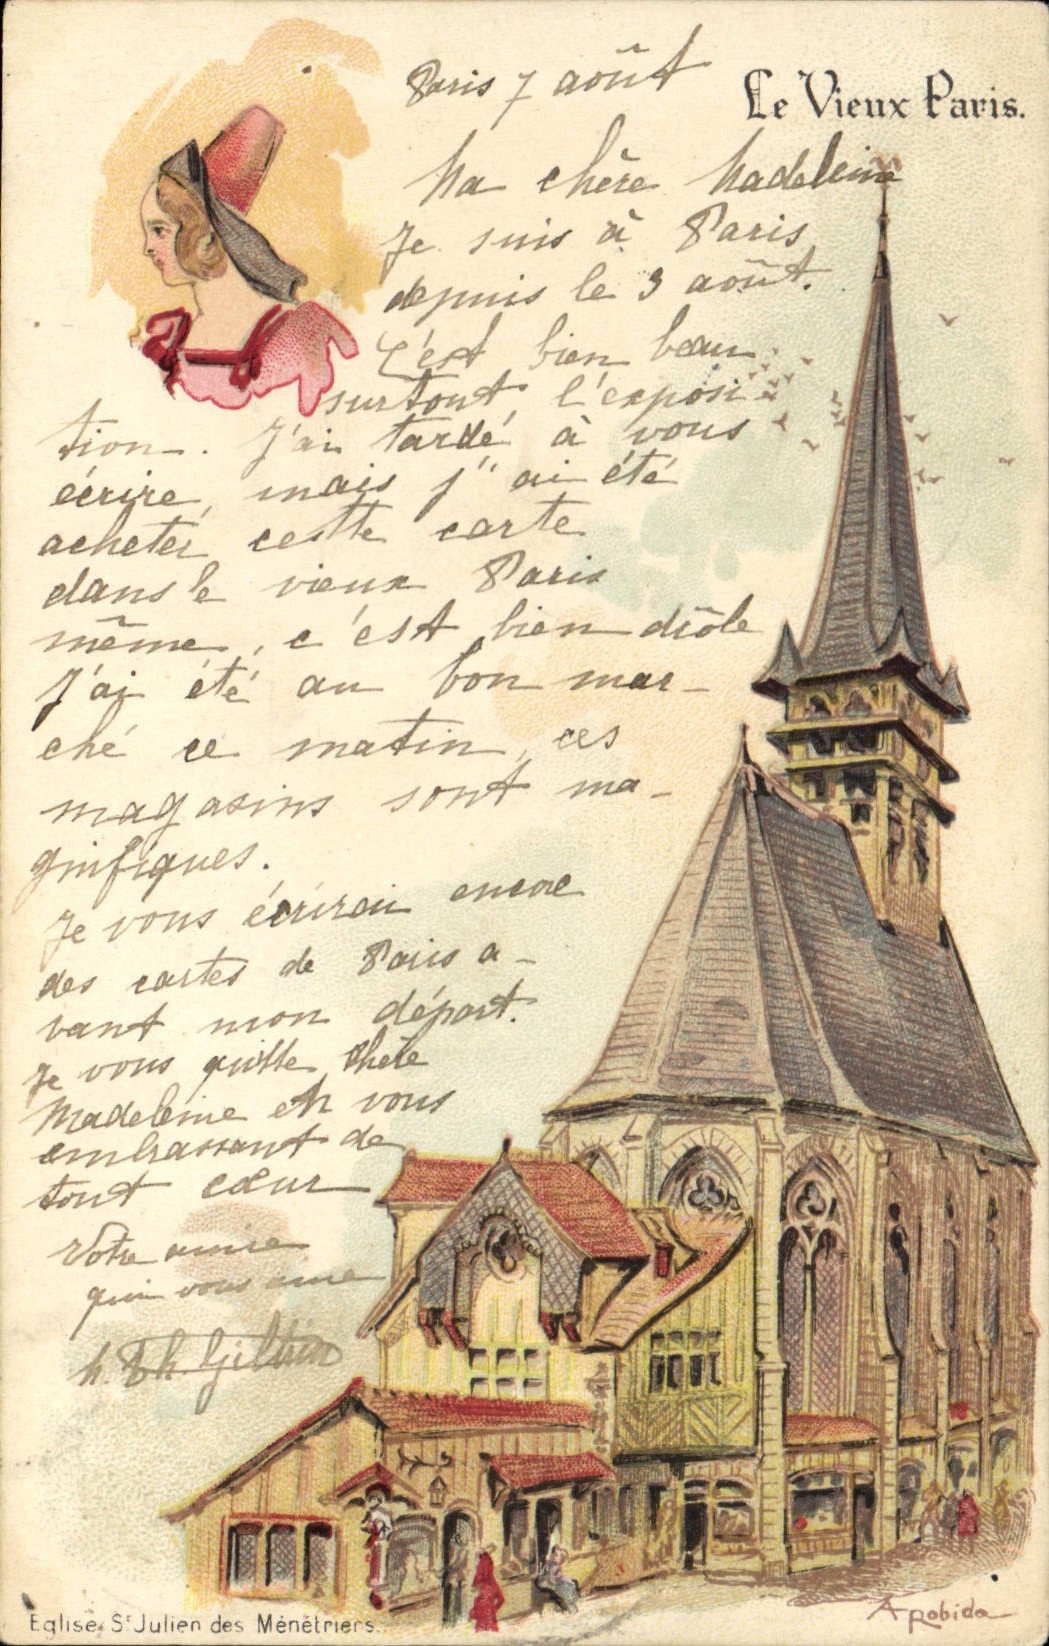 Le Vieux Paris.
Paris 7 août
Ma chère Madeleine
Je suis à Paris
depuis le 3 août.
C'est bien beau
surtout l'exposi
tion. J'ai tardé à vous
écrire, mais j'ai été
acheter cette carte
dans le vieux Paris
même, c'est bien drôle
J'ai été au bon mar-
ché ce matin, ces
magasins sont ma-
gnifiques.
Je vous écrirai encore
des cartes de Paris a-
vant mon départ.
Je vous quitte chère
Madeleine en vous
embrassant de
tout cœur
Votre amie
qui vous aime
M. Th.
Eglise St Julien des Ménétriers.
A Robida